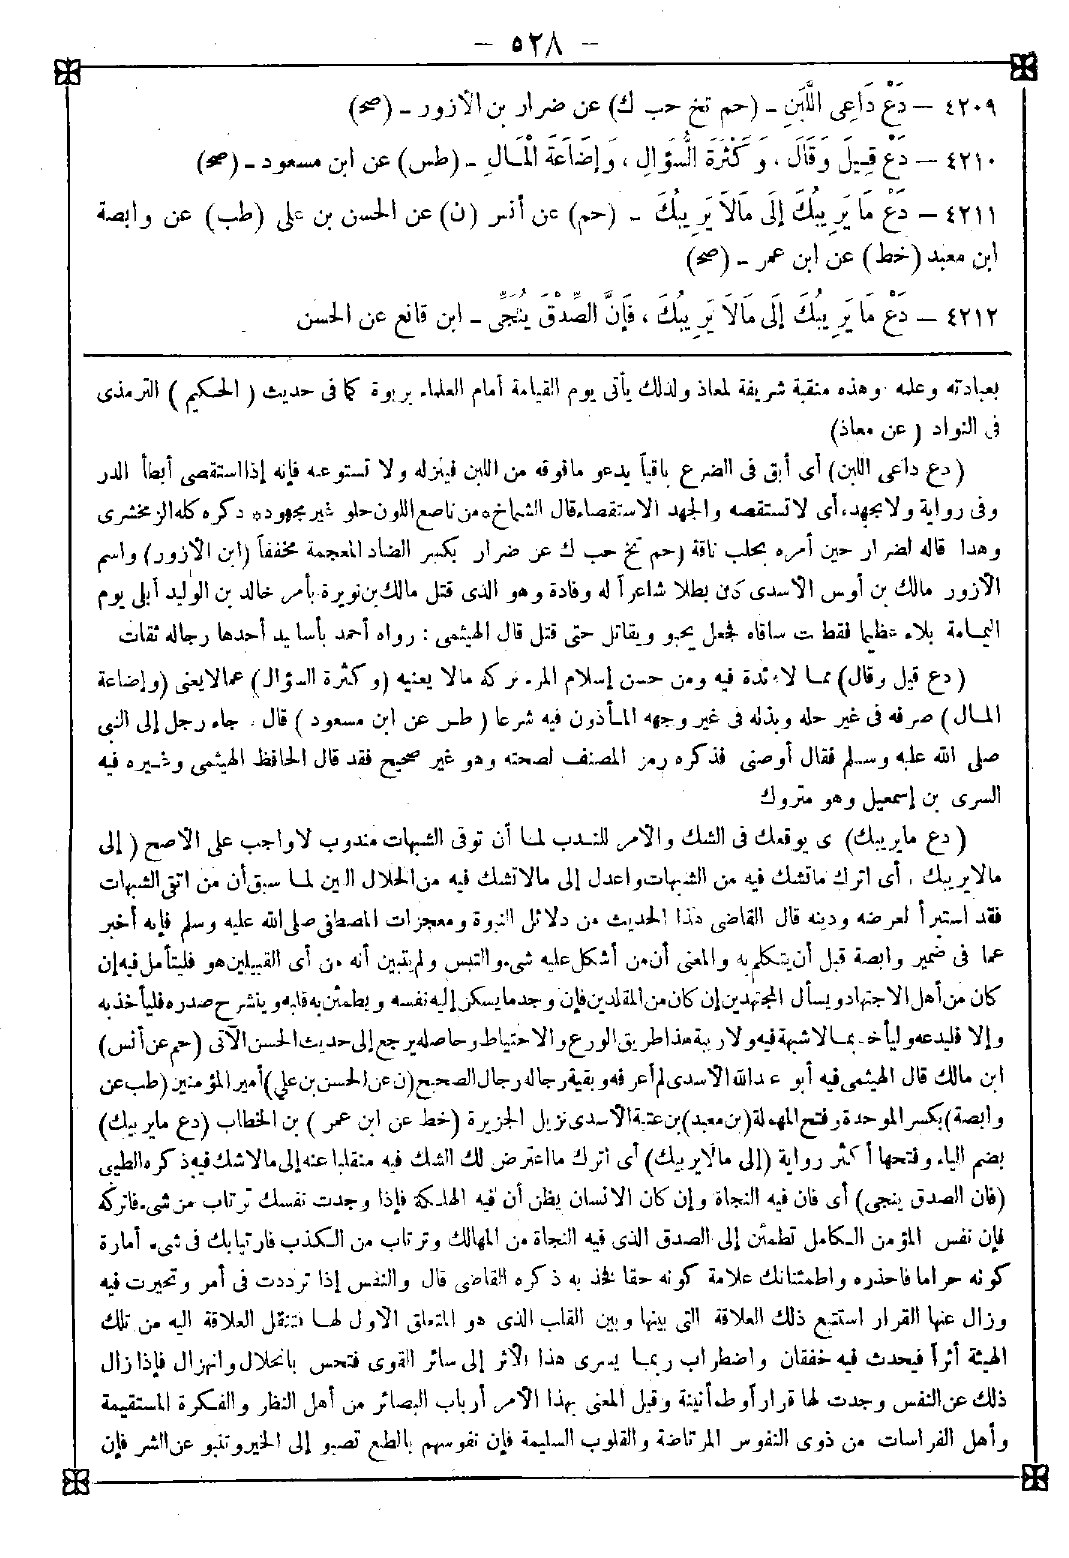 — ٥٢٨ —
٤٢٠٩ — دَعْ دَاعِىَ اللَّبَنِ ـ (حم تخ حب ك) عن ضرار بن الأزور ـ (صح)
٤٢١٠ — دَعْ قِيلَ وَقَالَ ، وَكَثْرَةَ السُّؤَالِ ، وَإِضَاعَةَ الْمَالِ ـ (طس) عن ابن مسعود ـ (صح)
٤٢١١ — دَعْ مَا يَرِيبُكَ إِلَى مَالَا يَرِيبُكَ ـ (حم) عن أنس (ن) عن الحسن بن على (طب) عن وابصة
ابن معبد (خط) عن ابن عمر ـ (صح)
٤٢١٢ — دَعْ مَا يَرِيبُكَ إِلَى مَالَا يَرِيبُكَ ، فَإِنَّ الصِّدْقَ يُنَجِّى ـ ابن قانع عن الحسن
بعبادته وعلمه وهذه منقبة شريفة لمعاذ ولذلك يأتى يوم القيامة أمام العلماء بربوة كما فى حديث (الحكيم) الترمذى
فى النواد (عن معاذ)
(دع داعى اللبن) أى أبق فى الضرع باقياً يدعو مافوقه من اللبن فينزله ولا تستوعبه فإنه إذا استقصى أبطأ الدر
وفى رواية ولا يجهد، أى لا تستقصه والجهد الاستقصاء قال الشماخ ه من ناصع اللون حلو غير مجهود ه ذكره كله الزمخشرى
وهذا قاله لضرار حين أمره بحلب ناقة (حم تخ حب ك عن ضرار بكسر الضاد المعجمة مخففاً (ابن الأزور) واسم
الأزور مالك بن أوس الأسدى كان بطلا شاعراً له وفادة وهو الذى قتل مالك بن نويرة بأمر خالد بن الوليد أبلى يوم
اليمامة بلاء عظيما فقطعت ساقاه فجعل يحبو ويقاتل حتى قتل قال الهيثمى : رواه أحمد بأسانيد أحدها رجاله ثقات
(دع قيل وقال) مما لا فائدة فيه ومن حسن إسلام المرء تركه مالا يعنيه (وكثرة السؤال) عمالا يعنى (وإضاعة
المال) صرفه فى غير حله وبذله فى غير وجهه المأذون فيه شرعا (طس عن ابن مسعود) قال ، جاء رجل إلى النبى
صلى الله عليه وسلم فقال أوصنى فذكره رمز المصنف لصحته وهو غير صحيح فقد قال الحافظ الهيثمى وغيره فيه
السرى بن إسمعيل وهو متروك
(دع مايريبك) أى يوقعك فى الشك والأمر للندب لما أن توقى الشبهات مندوب لاواجب على الأصح (إلى
مالا يريبك) أى اترك ماتشك فيه من الشبهات واعدل إلى مالا تشك فيه من الحلال البين لما سبق أن من اتقى الشبهات
فقد استبرأ لعرضه ودينه قال القاضى هذا الحديث من دلائل النبوة ومعجزات المصطفى صلى الله عليه وسلم فإنه أخبر
عما فى ضمير وابصة قبل أن يتكلم به والمعنى أن من أشكل عليه شىء والتبس ولم يتبين أنه من أى القبيلين هو فليتأمل فيه إن
كان من أهل الاجتهاد ويسأل المجتهدين إن كان من المقلدين فإن وجد ما يسكن إليه نفسه ويطمئن به قلبه وينشرح صدره فليأخذ به
وإلا فليدعه وليأخذ بما لا شبهة فيه ولا ريبة هذا طريق الورع والاحتياط وحاصله يرجع إلى حديث الحسن الآتى (حم عن أنس)
ابن مالك قال الهيثمى فيه أبو عبد الله الأسدى لم أعرفه وبقية رجاله رجال الصحيح (ن عن الحسن بن على) أمير المؤمنين (طب عن
وابصة) بكسر الموحدة وفتح المهملة (بن معبد) بن عتبة الأسدى نزيل الجزيرة (خط عن ابن عمر) بن الخطاب (دع مايريبك)
بضم الياء وفتحها أكثر رواية (إلى مالا يريبك) أى اترك ما اعترض لك الشك فيه منقلبا عنه إلى مالا شك فيه ذكره الطيبى
(فان الصدق ينجى) أى فان فيه النجاة وإن كان الانسان يظن أن فيه الهلكة فإذا وجدت نفسك ترتاب من شىء فاتركه
فإن نفس المؤمن الكامل تطمئن إلى الصدق الذى فيه النجاة من المهالك وترتاب من الكذب فارتيابك فى شىء أمارة
كونه حراما فاحذره واطمئنانك علامة كونه حقا فخذ به ذكره القاضى قال والنفس إذا ترددت فى أمر وتحيرت فيه
وزال عنها القرار استتبع ذلك العلاقة التى بينها وبين القلب الذى هو المتعلق الأول لها فتنتقل العلاقة اليه من تلك
الهيئة أثراً فيحدث فيه خفقان واضطراب ربما يسرى هذا الأثر إلى سائر القوى فتحس بانحلال وانهزال فإذا زال
ذلك عن النفس وجدت لها قراراً وطمأنينة وقيل المعنى بهذا الأمر أرباب البصائر من أهل النظر والفكرة المستقيمة
وأهل الفراسات من ذوى النفوس المرتاضة والقلوب السليمة فإن نفوسهم بالطبع تصبو إلى الخير وتنبو عن الشر فإن